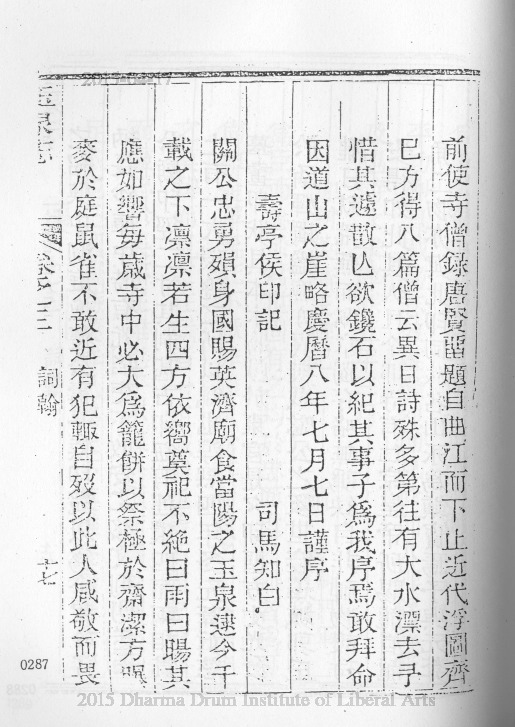 前使寺僧録唐賢畱題自曲江而下止近代浮圖齊
巳方得八篇僧云異日詩殊多第往有大水漂去子
惜其遽散亾欲鑱石以紀其事子爲我序焉敢拜命
因道山之崖略慶曆八年七月七日謹序
壽亭侯印記 司馬知白
關公忠勇殞身國賜英濟廟食當陽之玉泉逮今千
載之下凛凛若生四方依嚮奠祀不絶曰雨曰暘其
應如響每歲寺中必大爲籠餅以祭極於齋潔方
麥於庭鼠雀不敢近有犯輒自歿以此人咸敬而畏
玉泉志 卷之三 詞翰 十七
0287
2015 Dharma Drum Institute of Liberal Arts